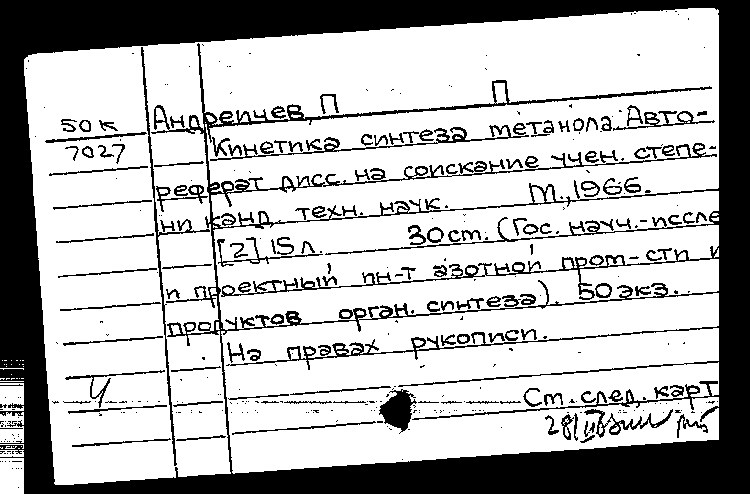 50к Андреичев, П П
7027 Кинетика синтеза метанола. Авто-
реферат дисс. на соискание учен. степе-
ни канд. техн. наук. М., 1966.
[2], 15 л. 30 см. (Гос. науч.-иссле
и проектный ин-т азотной пром-сти и
продуктов орган. синтеза). 50 экз.
На правах рукописи.
Ч
См. след. карт